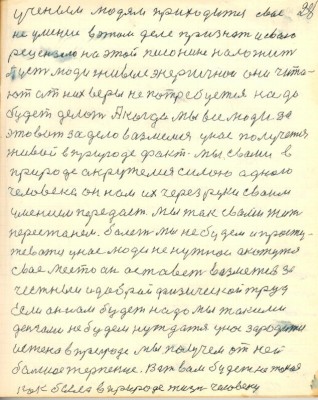 28
ученым людям приходится свое
не умение в этом деле признат и свою
рецензию на этой писанине наложит
Пуст люди живые энергичное они чита-
ют от них веры не потребуется надо
будет делат А когда мы все люди за
это вот за дело возмемся у нас получется
живой в природе факт. Мы с вами в
природе окружемся силою одного
человека он нам их через руки своим
умением передаст. Мы так с вами жит
перестанем. болет мы не будем и просту-
жеватся у нас люди не нужное
свое место он оставет возмется за
честный и добрый физической труд
Если он нам будет надо мы такими
денгами не будем нуждатся у нас зародится
истена в природе мы получем от ней
болшое терпение. Вот вам будет на такая
как была в природе жизн человеку